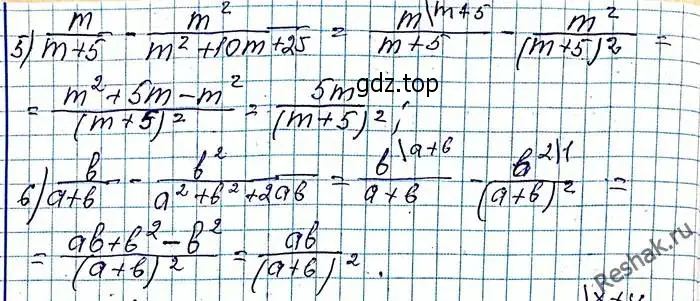 5) m/(m+5) - m²/(m²+10m+25) = m\m+5/(m+5) - m²/(m+5)² =
= (m²+5m-m²)/(m+5)² = 5m/(m+5)²;
гдz.top
6) b/(a+b) - b²/(a²+b²+2ab) = b\a+b/(a+b) - b²\1/(a+b)² =
= (ab+b²-b²)/(a+b)² = ab/(a+b)².
Reshak.ru